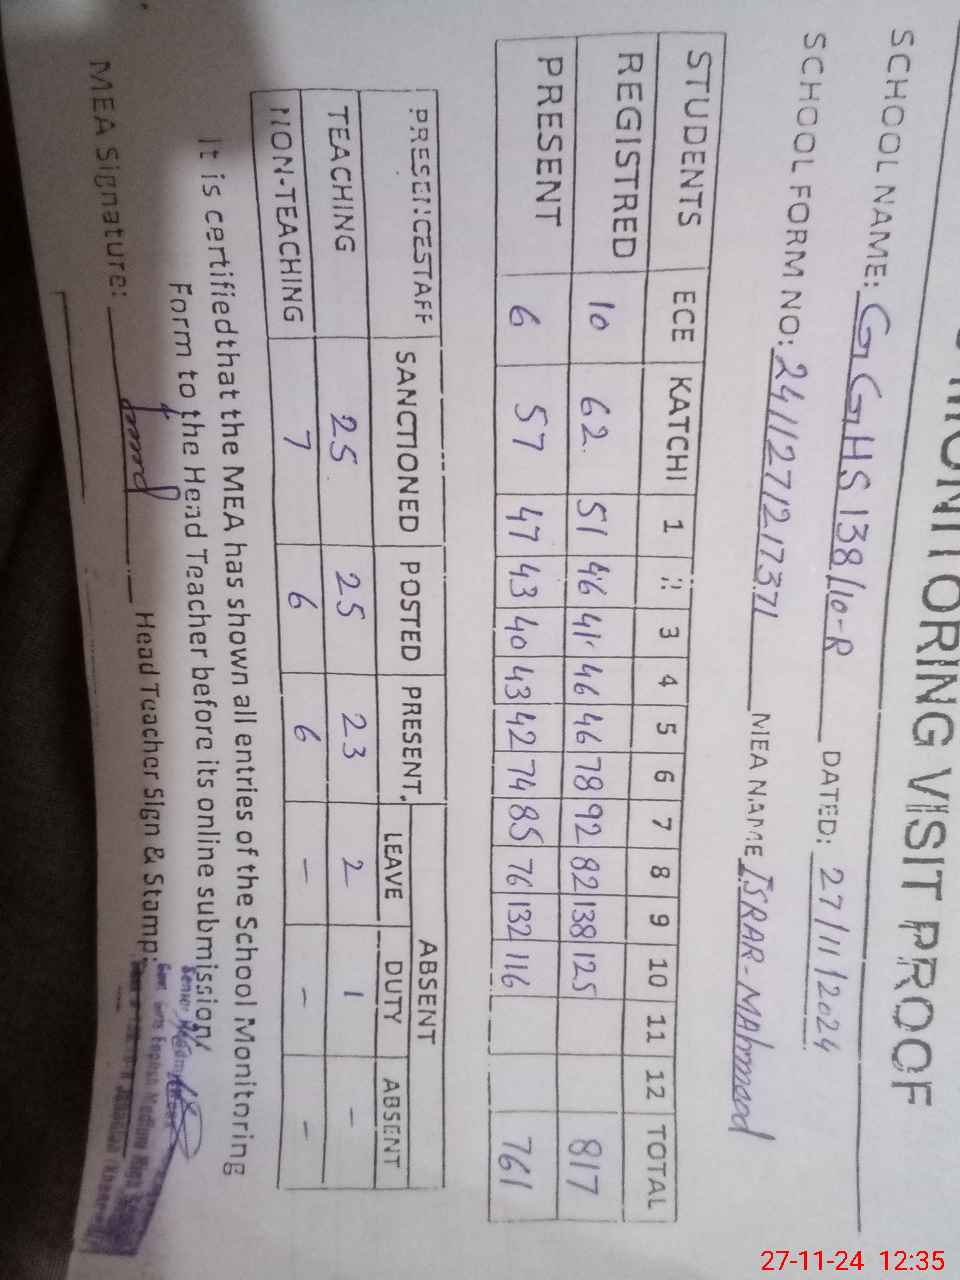 MONITORING VISIT PROOF
SCHOOL NAME: GGHS 138/10-R DATED: 27/11/2024
SCHOOL FORM NO: 2411271217371 MEA NAME ISRAR-MAhmood
STUDENTS ECE KATCHI 1 2 3 4 5 6 7 8 9 10 11 12 TOTAL
REGISTRED 10 62 51 46 41 46 46 78 92 82 138 125 817
PRESENT 6 57 47 43 40 43 42 74 85 76 132 116 761
PRESENCESTAFF SANCTIONED POSTED PRESENT ABSENT
LEAVE DUTY ABSENT
TEACHING 25 25 23 2 1 -
NON-TEACHING 7 6 6 - - -
It is certified that the MEA has shown all entries of the School Monitoring
Form to the Head Teacher before its online submission
MEA Signature: Head Teacher Sign & Stamp:
Senior Head
Govt. Girls English Medium High
27-11-24 12:35